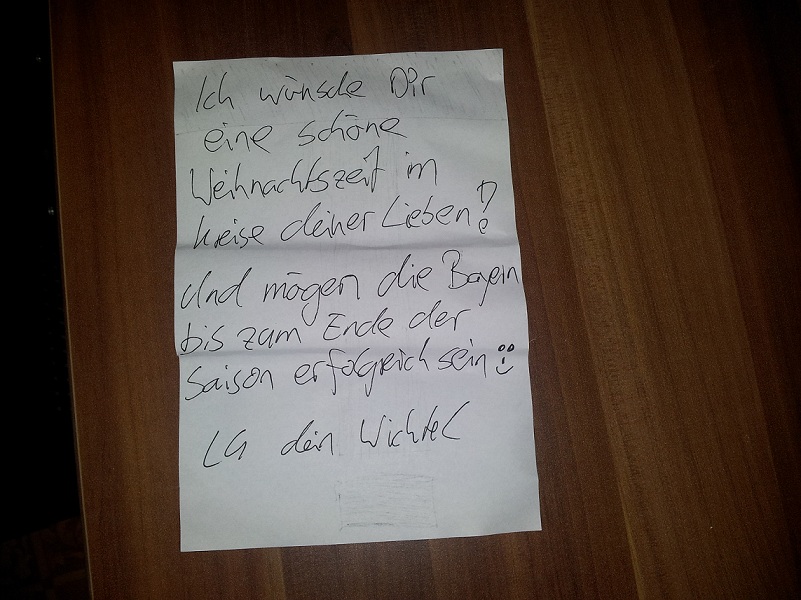 Ich wünsche Dir
eine schöne
Weihnachtszeit im
Kreise deiner Lieben!
Und mögen die Bayern
bis zum Ende der
Saison erfolgreich sein
LG dein Wichtel